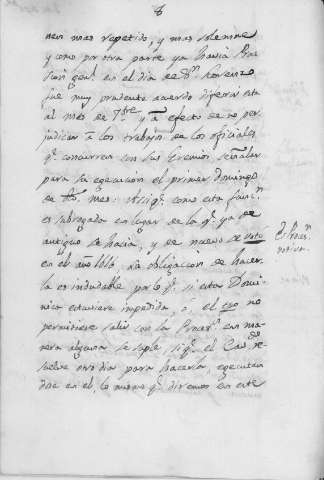 8
nen mas repetido, y mas solemne
y como por otra parte ya havia Pro
cion genl. en el dia de Sn Lorenzo
fue muy prudente acuerdo diferir esta
al mes de 7bre y a efecto de no per
judicar a los trabajos de los oficiales
qe. concurren con sus Gremios, señalar
para su egecucion el primer Domingo
de dho. mes: Assi qe. como esta funcn.
es subrogada en lugar de la qe. ya de
antiguo se hacia, y de nuevo se votó
en el año 1616 la obligacion de hacer
la es indudable por lo qe. si esta Domi
nica estuviere impedida, ó el tpo no
permitiere salir con la Procesn en ma
nera alguna se suple, si qe. el Cavdo re
suelve otro dia para hacerla egecutan
dose en el, lo mismo qe. diremos en este
Procesn
votiva.